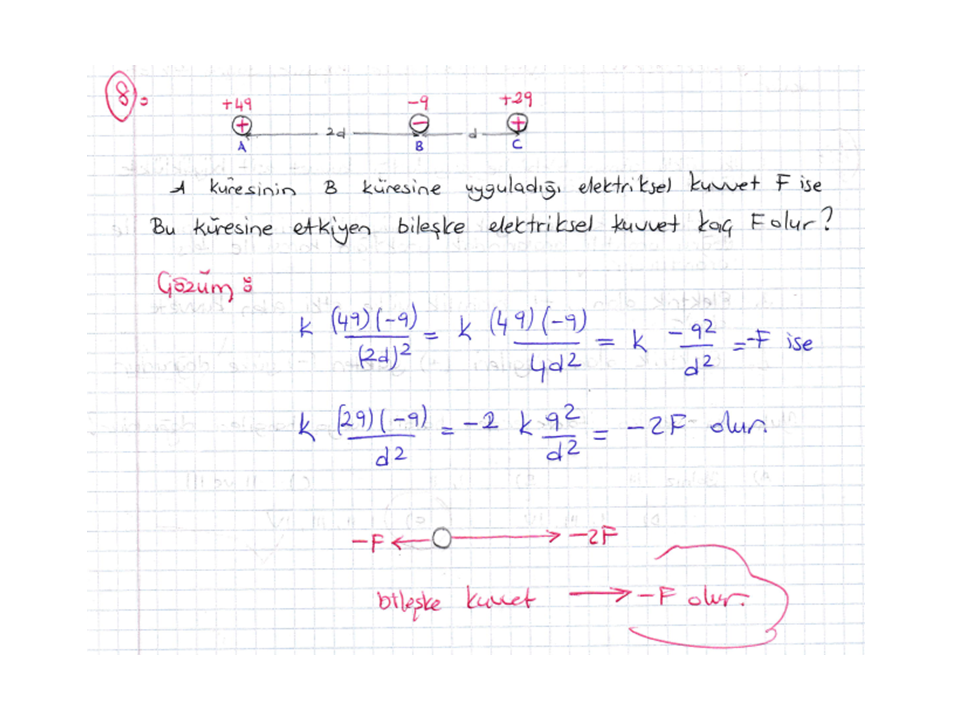 8.
+4q -q +2q
2d d
A B C
A küresinin B küresine uyguladığı elektriksel kuvvet F ise
Bu küresine etkiyen bileşke elektriksel kuvvet kaç F olur?
Çözüm:
k (4q)(-q)/(2d)² = k (4q)(-q)/4d² = k -q²/d² = -F ise
k (2q)(-q)/d² = -2 k q²/d² = -2F olur.
-F ← → -2F
bileşke kuvvet → -F olur.